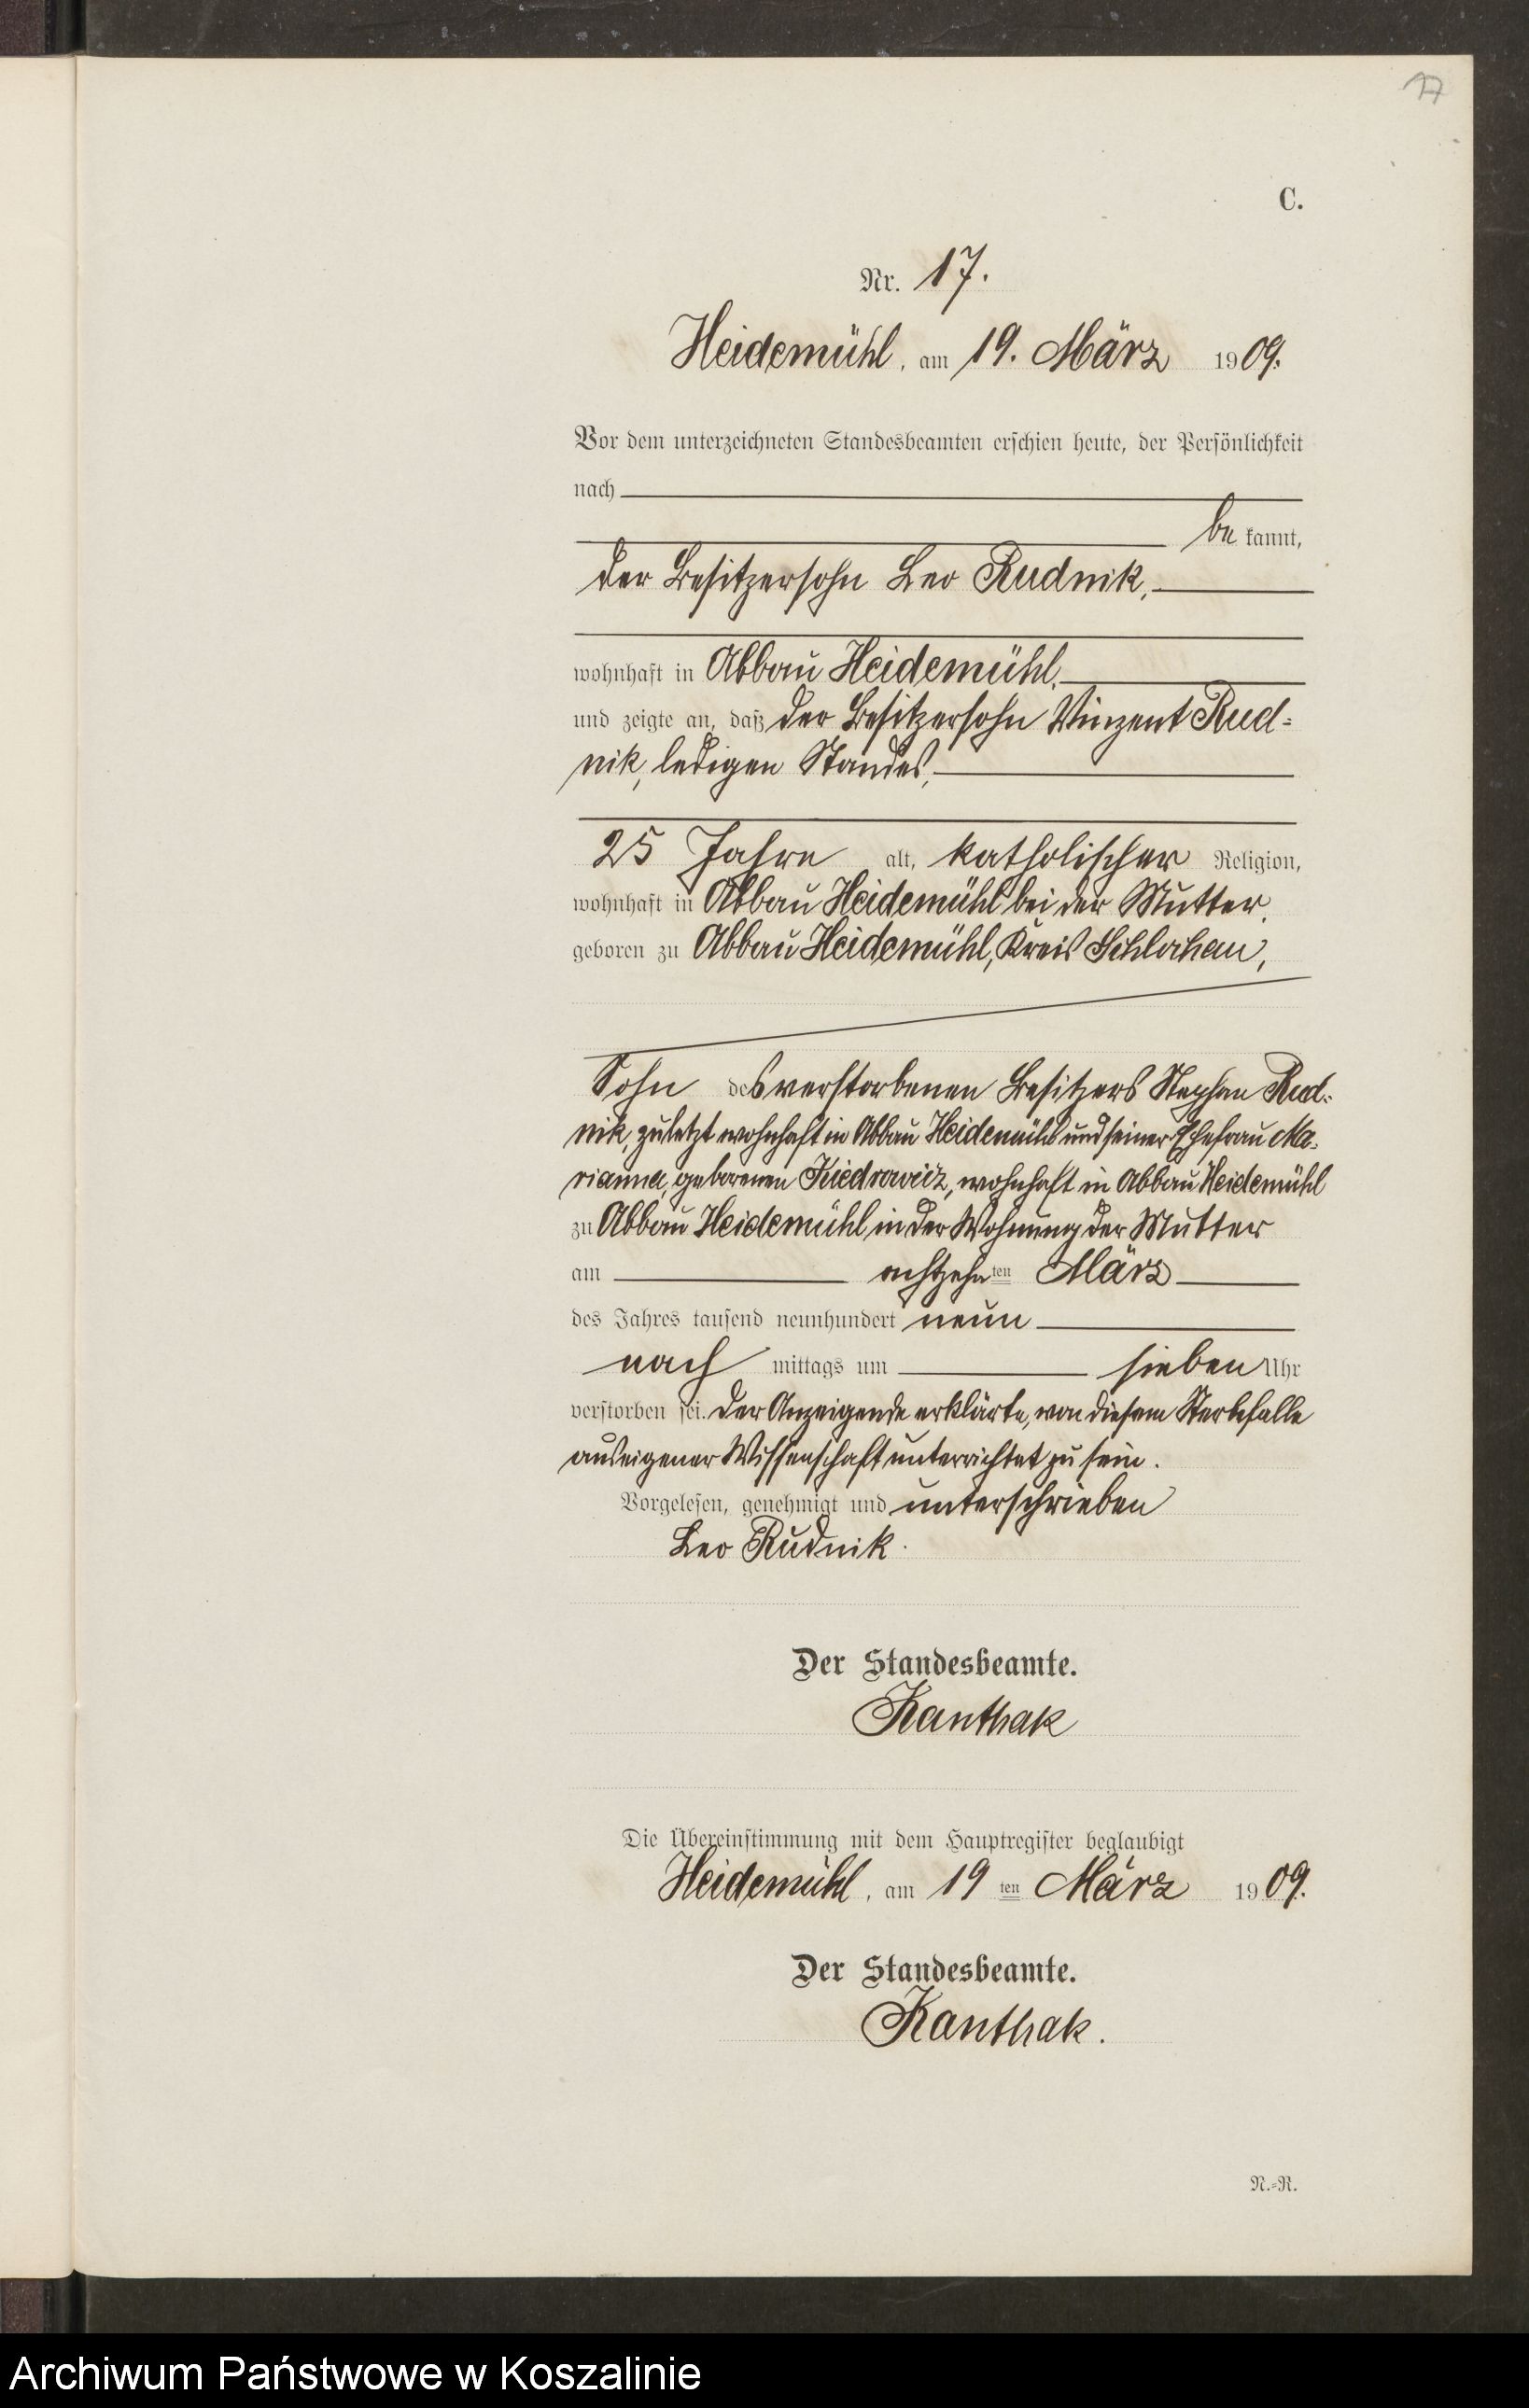 17
C.
Nr. 17.
Heidemühl, am 19. März 1909.
Vor dem unterzeichneten Standesbeamten erschien heute, der Persönlichkeit
nach
be kannt,
der Besitzersohn Leo Rudnik,
wohnhaft in Abbau Heidemühl,
und zeigte an, daß der Besitzersohn Vinzent Rud-
nik, ledigen Standes,
25 Jahre alt, katholischer Religion,
wohnhaft in Abbau Heidemühl bei der Mutter,
geboren zu Abbau Heidemühl, Kreis Schlochau,
Sohn des verstorbenen Besitzers Stephan Rud-
nik, zuletzt wohnhaft in Abbau Heidemühl und seiner Ehefrau Ma-
rianna, geborenen Kiedrowicz, wohnhaft in Abbau Heidemühl
zu Abbau Heidemühl in der Wohnung der Mutter
am achtzehnten März
des Jahres tausend neunhundert neun
nach mittags um sieben Uhr
verstorben sei. Der Anzeigende erklärte, von diesem Sterbefalle
aus eigener Wissenschaft unterrichtet zu sein.
Vorgelesen, genehmigt und unterschrieben
Leo Rudnik.
Der Standesbeamte.
Kanthak
Die Übereinstimmung mit dem Hauptregister beglaubigt
Heidemühl, am 19ten März 1909.
Der Standesbeamte.
Kanthak.
N.-R.
Archiwum Państwowe w Koszalinie